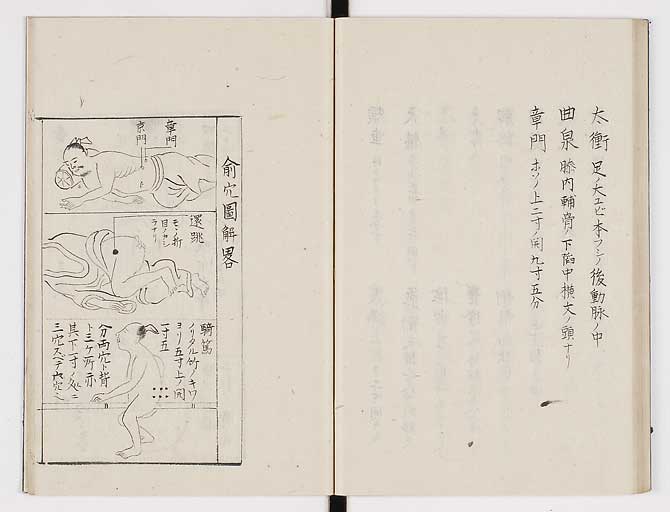 太衝 足ノ大ユビ本フシノ後動脉ノ中
曲泉 膝内輔骨ノ下陷中横文ノ頭ナリ
章門 ホソノ上二寸ノ開九寸五分
俞穴圖解畧
章門
京門
還跳
モヽノ折
目ノカシ
ラナリ
騎竹
ノリタル竹ノキワ
ヨリ五寸上ノ開
一寸五
分両穴ト背
ト三ケ所亦
其下一寸ノ処ニ
三穴スベテ六穴